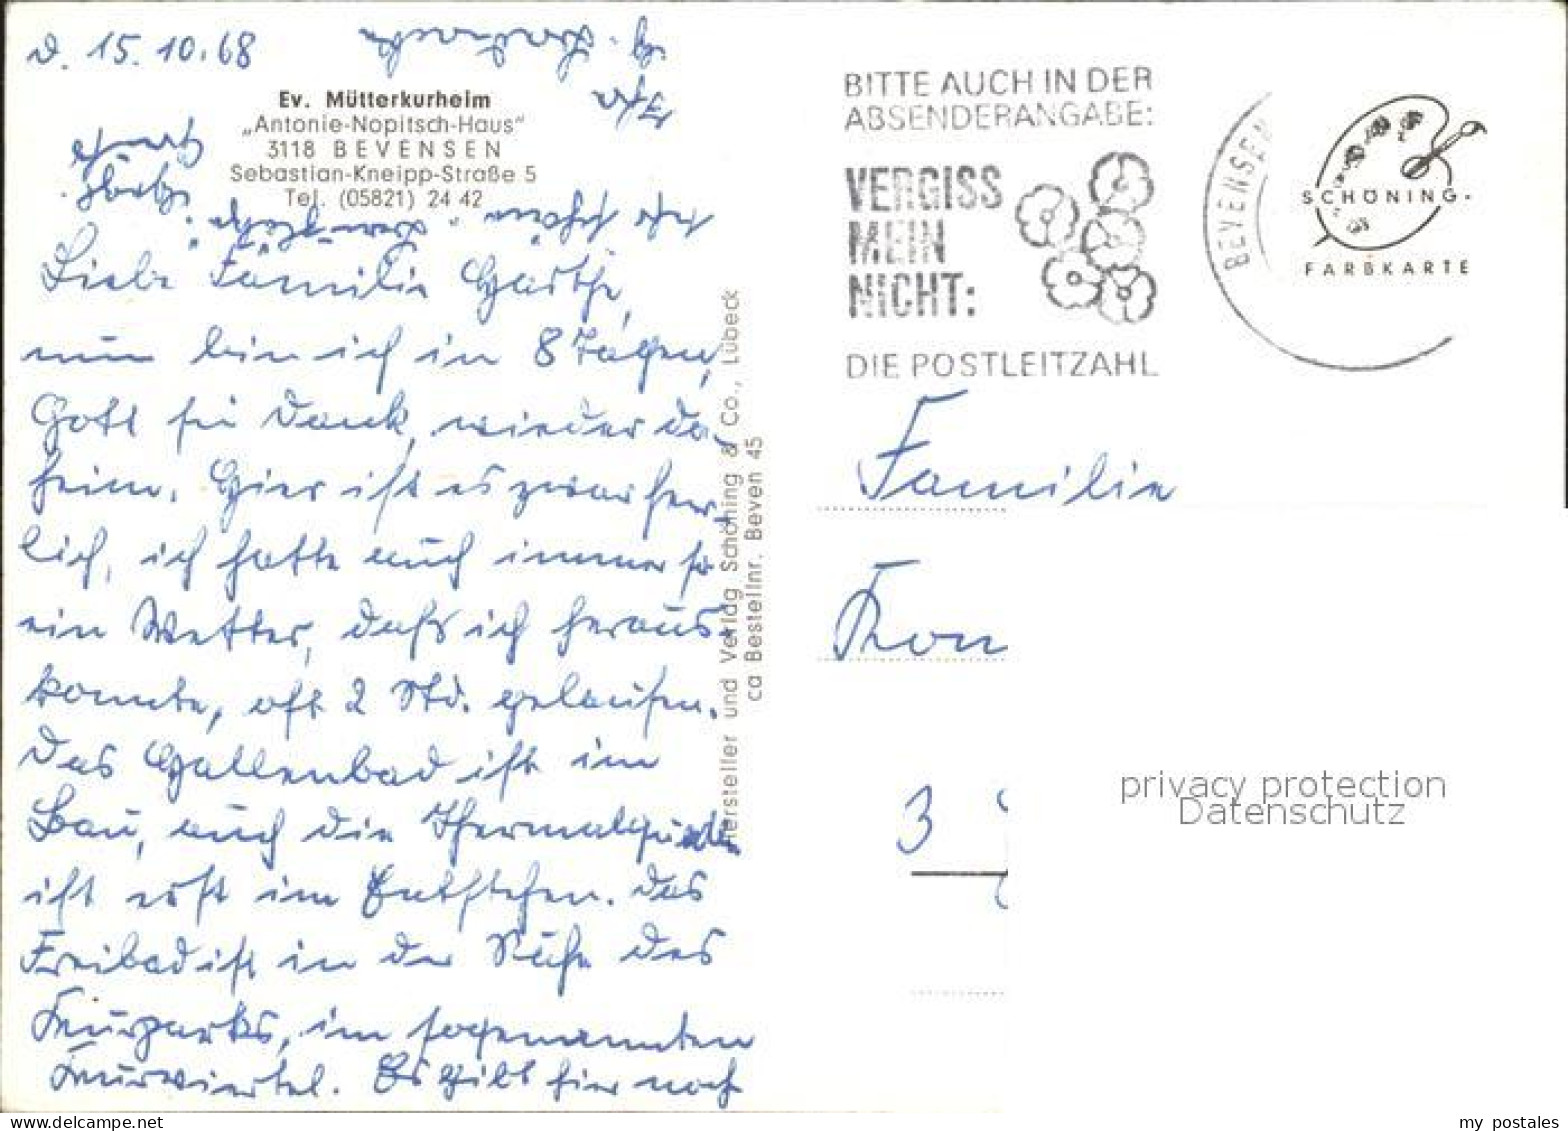 d. 15.10.68
Ev. Mütterkurheim
„Antonie-Nopitsch-Haus"
3118 BEVENSEN
Sebastian-Kneipp-Straße 5
Tel. (05821) 24 42
Liebe Familie
nun bin ich in 8 Tagen,
Gott sei Dank, wieder da-
heim. Hier ist es zwar herr-
lich, ich hatte auch immer so
ein Wetter, daß ich heraus-
konnte, oft 2 Std. gelaufen.
Das Hallenbad ist im
Bau, auch die
ist erst im Entstehen. Das
Freibad ist in der Nähe des
Kurparks, im sogenannten
Kurviertel. Es gibt hier noch
sehr schöne
Hersteller und Verlag Schöning & Co., Lübeck
ca Bestellnr. Beven 45
BITTE AUCH IN DER
ABSENDERANGABE:
VERGISS
MEIN
NICHT:
DIE POSTLEITZAHL
BEVENSEN
SCHÖNING-
FARBKARTE
Familie
3
privacy protection
Datenschutz
my postales